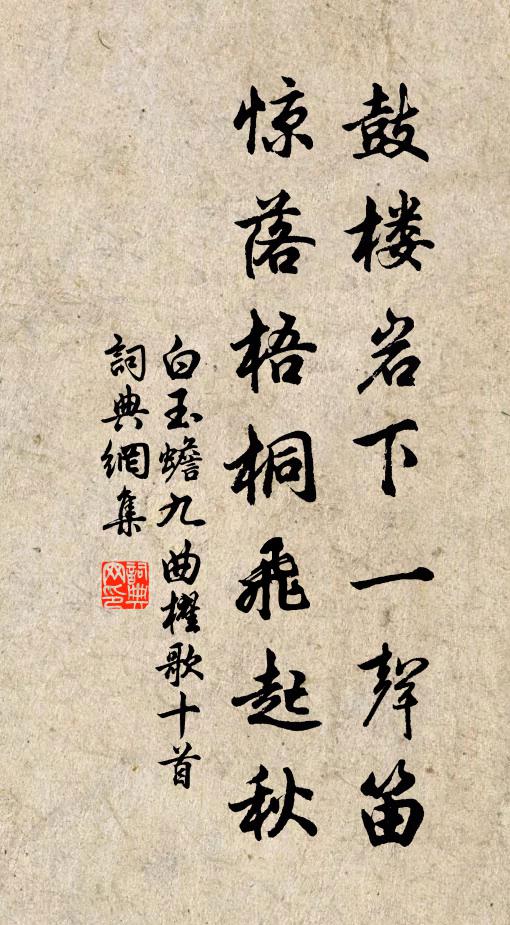 鼓楼岩下一聲笛
惊落梧桐飛起秋
白玉蟾九曲櫂歌十首
詞典網集
詞典网印